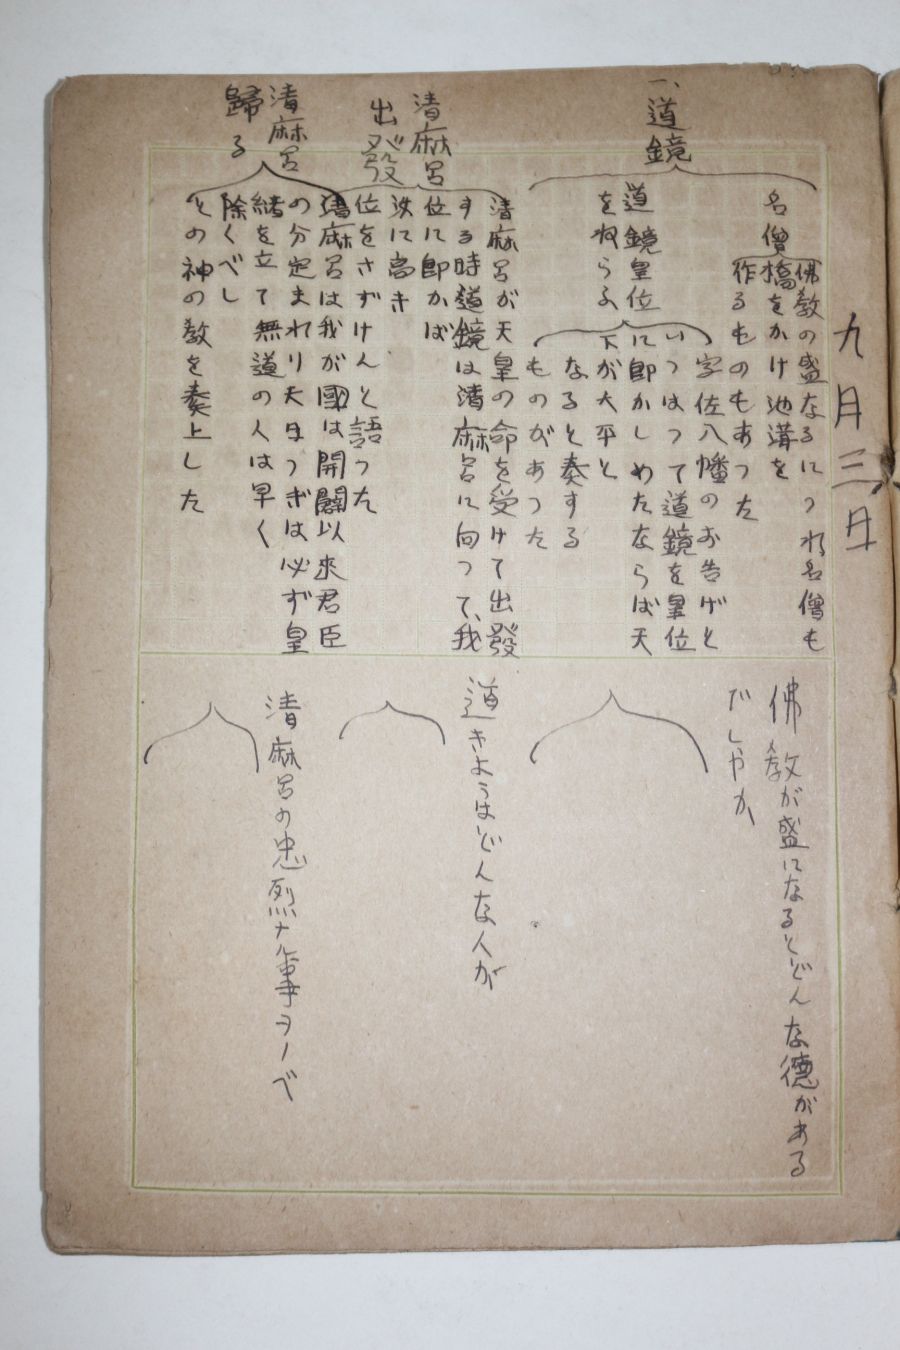 九月三日
一、道鏡
名僧
佛教の盛なるにつれ名僧も
橋をかけ池溝を
作るものもあつた
道鏡皇位
をねらふ
宇佐八幡のお告げと
いつはつて道鏡を皇位
に即かしめたならば天
下が太平と
なると奏する
ものがあつた
清麻呂
出發
清麻呂が天皇の命を受けて出發
する時道鏡は清麻呂に向つて、我
位に即かば
汝に高き
位をさずけんと語つた
清麻呂
歸る
清麻呂は我が國は開闢以來君臣
の分定まれり天日つぎは必ず皇
緒を立て無道の人は早く
除くべし
との神の敎を奏上した
佛教が盛になるとどんな德がある
でしやか、
道きようはどんな人が
清麻呂の忠烈ナ事ヲノベ